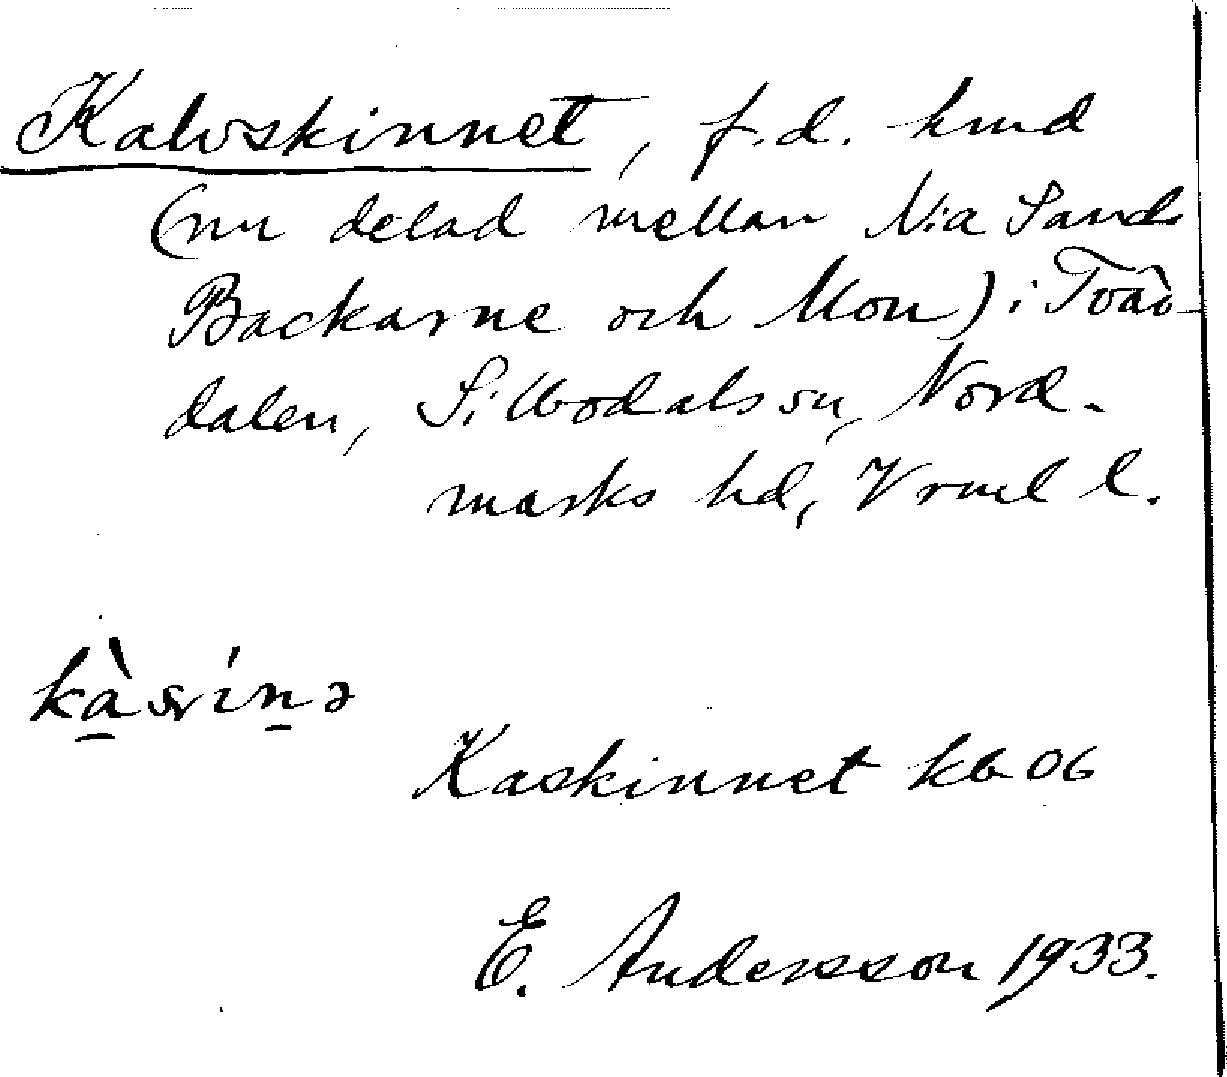 Kalvskinnet, f.d. hmd
(nu delad mellan N:a Sand
Backarne och Mon) i Tvärdalen, Sillbodals sn, Nord-
marks hd, Vrml l.
Kaskinnet kb 06
E. Andersson 1933.